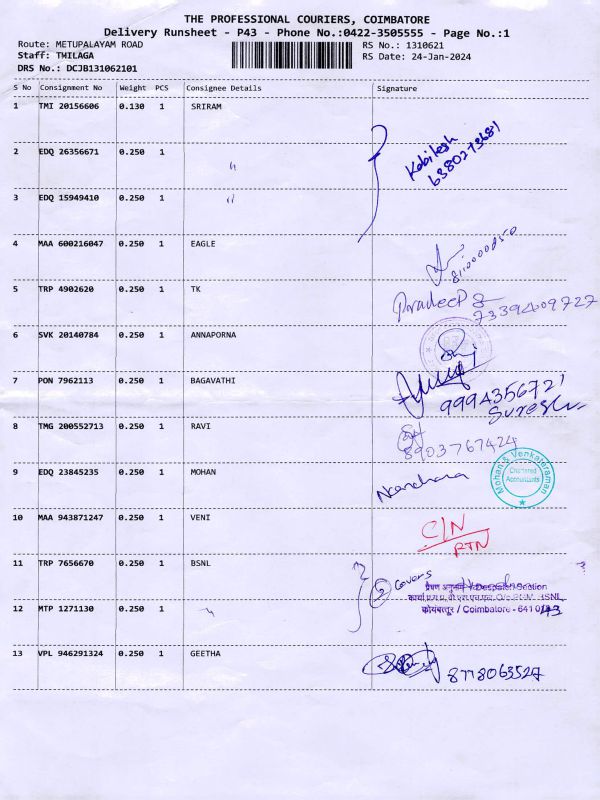 THE PROFESSIONAL COURIERS, COIMBATORE
Delivery Runsheet - P43 - Phone No.:0422-3505555 - Page No.:1
Route: METUPALAYAM ROAD RS No.: 1310621
Staff: TMILAGA RS Date: 24-Jan-2024
DRS No.: DCJB131062101
S No Consignment No Weight PCS Consignee Details Signature
1 TMI 20156606 0.130 1 SRIRAM
Kabilesh
6380273681
2 EDQ 26356671 0.250 1 "
3 EDQ 15949410 0.250 1 "
4 MAA 600216047 0.250 1 EAGLE
5 TRP 4902620 0.250 1 TK Pradeep
7339409727
6 SVK 20140784 0.250 1 ANNAPORNA
7 PON 7962113 0.250 1 BAGAVATHI 9994356721
Suresh
8 TMG 200552713 0.250 1 RAVI 8903767424
9 EDQ 23845235 0.250 1 MOHAN
Mohan & Venkataraman
Chartered
Accountants
10 MAA 943871247 0.250 1 VENI C/N
RTN
11 TRP 7656670 0.250 1 BSNL 2 Covers
प्रेषण अनुभाग / Despatch Section
BSNL
कोयंबत्तूर / Coimbatore - 641 043
12 MTP 1271130 0.250 1 "
13 VPL 946291324 0.250 1 GEETHA 8778063527